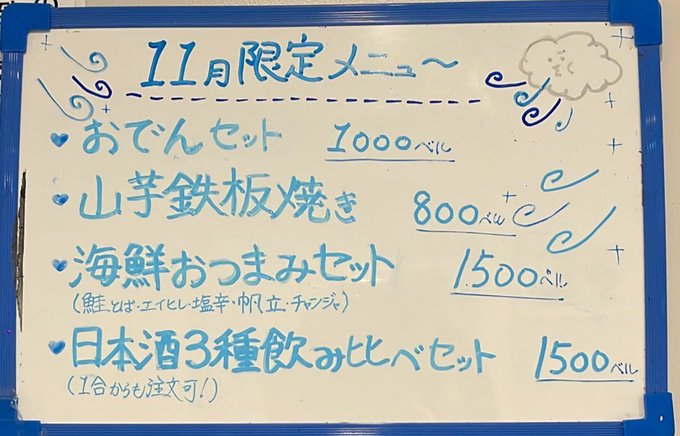 11月限定メニュ〜
おでんセット 1000ベル
山芋鉄板焼き 800ベル
海鮮おつまみセット 1500ベル
(鮭とば・エイヒレ・塩辛・帆立・チャンジャ)
日本酒3種飲み比べセット 1500ベル
(1合からも注文可!)